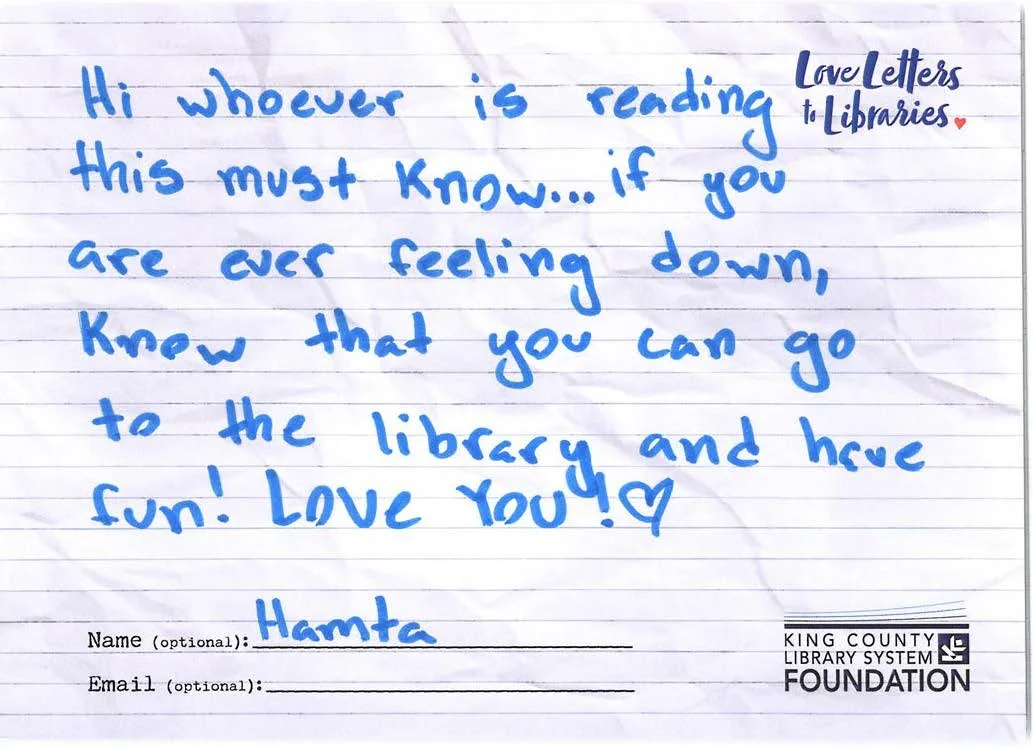 Love Letters
to Libraries
Hi whoever is reading
this must know... if you
are ever feeling down,
Know that you can go
to the library and have
fun! Love You!♡
Name (optional): Hamta
Email (optional):
KING COUNTY
LIBRARY SYSTEM
FOUNDATION